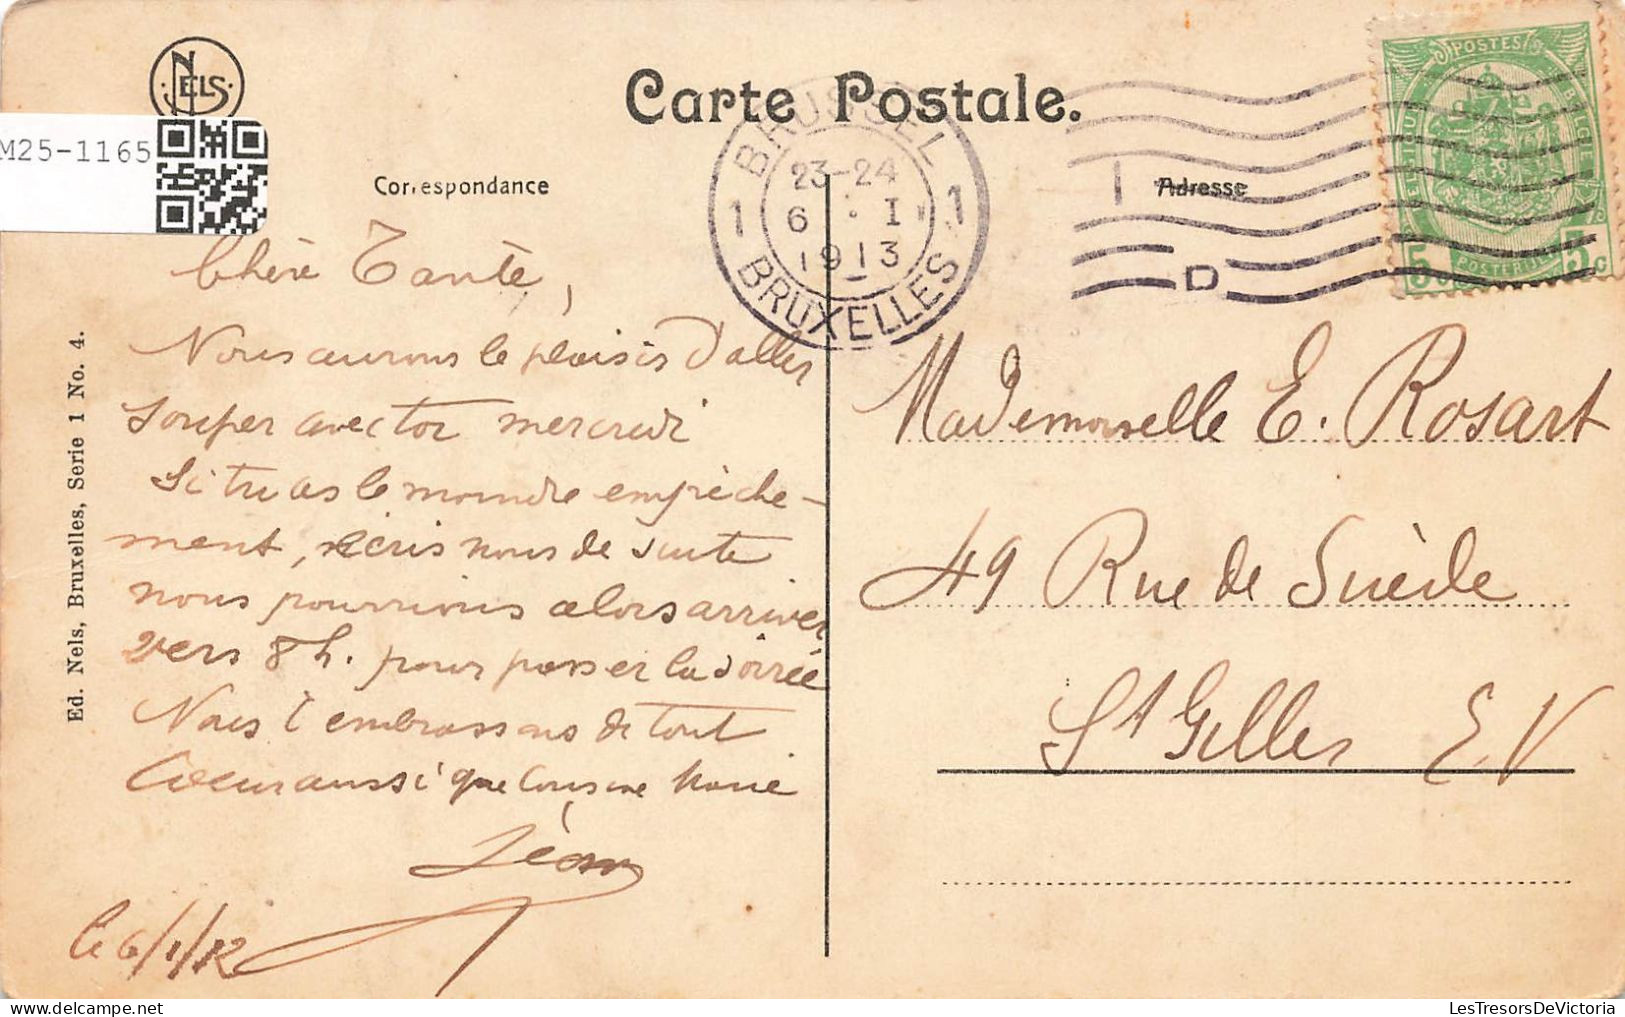 NELS
Carte Postale.
M25-1165
Correspondance
Adresse
BRUSSEL
23-24
1 6 · I 1
1913
BRUXELLES
D
POSTES
BELGIQUE
BELGIE
POSTERIJEN
5c 5c
Chère Tante,
Nous aurons le plaisir d'aller
souper avec toi mercredi
Si tu as le moindre empêche-
ment, écris nous de suite
nous pourrions alors arriver
vers 8 h. pour passer la soirée
Nous t'embrassons de tout
Coeur aussi que Cousine
Léon
Le 6/1/12
Mademoiselle E. Rosart
49 Rue de Suède
St Gilles E.V
Ed. Nels, Bruxelles, Serie 1 No. 4.
LesTresorsDeVictoria.com